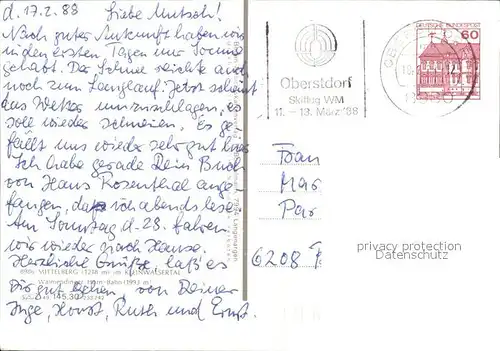 d. 17.2.88 Liebe Mutsch!
Nach guter Ankunft haben wir
in den ersten Tagen nur Sonne
gehabt. Der Schnee reichte auch
noch zum Langlauf. Jetzt scheint
das Wetter umzuschlagen, es
soll wieder schneien. Es ge-
fällt uns wieder sehr gut hier.
Ich habe gerade Dein Buch
von Hans Rosenthal ange-
fangen, das ich abends lese.
Am Sonntag d. 28. fahren
wir wieder nach Hause.
Herzliche Grüße, laß es
Dir gut gehen, von Deiner
Inge, Horst, Ruth und Ernst.
6986 MITTELBERG (1218 m) im KLEINWALSERTAL
Oberstdorf
Skiflug WM
11. – 13. März '88
DEUTSCHE BUNDESPOST
60
Frau
Mar
Par
6208
privacy protection
Datenschutz